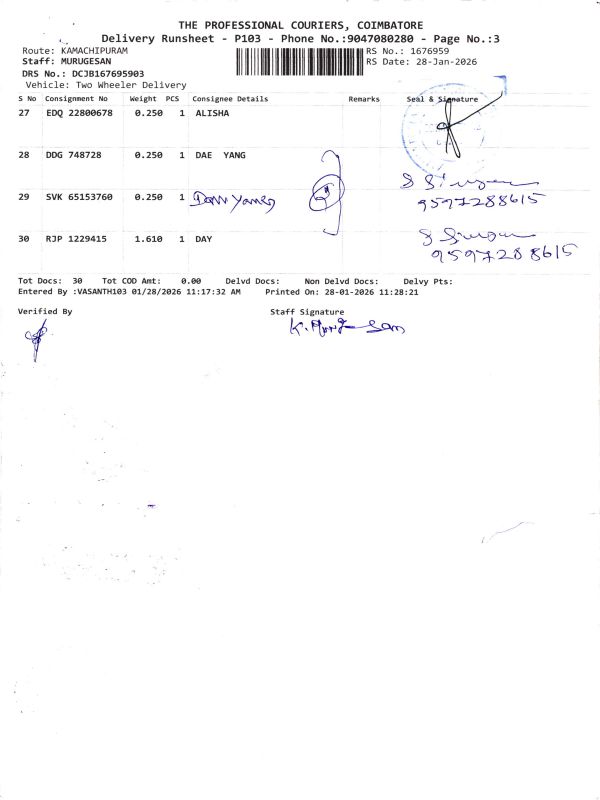 THE PROFESSIONAL COURIERS, COIMBATORE
Delivery Runsheet - P103 - Phone No.:9047080280 - Page No.:3
Route: KAMACHIPURAM
RS No.: 1676959
Staff: MURUGESAN
RS Date: 28-Jan-2026
DRS No.: DCJB167695903
Vehicle: Two Wheeler Delivery
S No Consignment No Weight PCS Consignee Details Remarks Seal & Signature
27 EDQ 22800678 0.250 1 ALISHA
28 DDG 748728 0.250 1 DAE YANG
29 SVK 65153760 0.250 1
9597288615
30 RJP 1229415 1.610 1 DAY
9597288615
Tot Docs: 30 Tot COD Amt: 0.00 Delvd Docs: Non Delvd Docs: Delvy Pts:
Entered By :VASANTH103 01/28/2026 11:17:32 AM Printed On: 28-01-2026 11:28:21
Verified By
Staff Signature